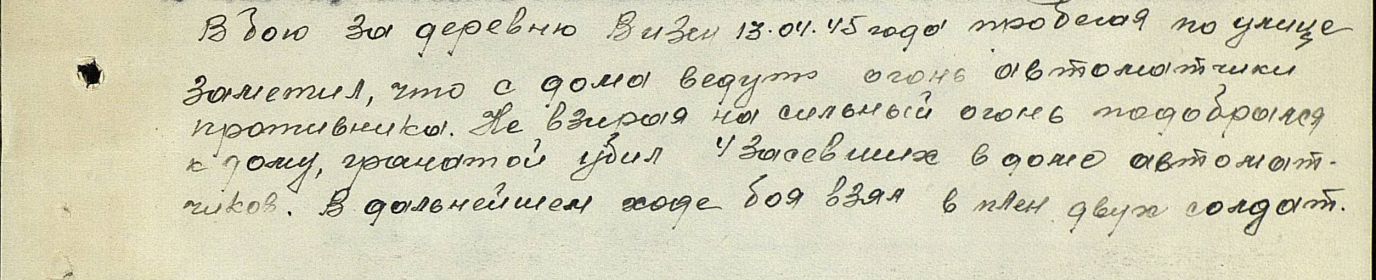 В бою за деревню Визен 13.04.45 года пробегая по улице
заметил, что с дома ведут огонь автоматчики
противника. Не взирая на сильный огонь подобрался
к дому, гранатой убил 4 засевших в доме автомат-
чиков. В дальнейшем ходе боя взял в плен двух солдат.